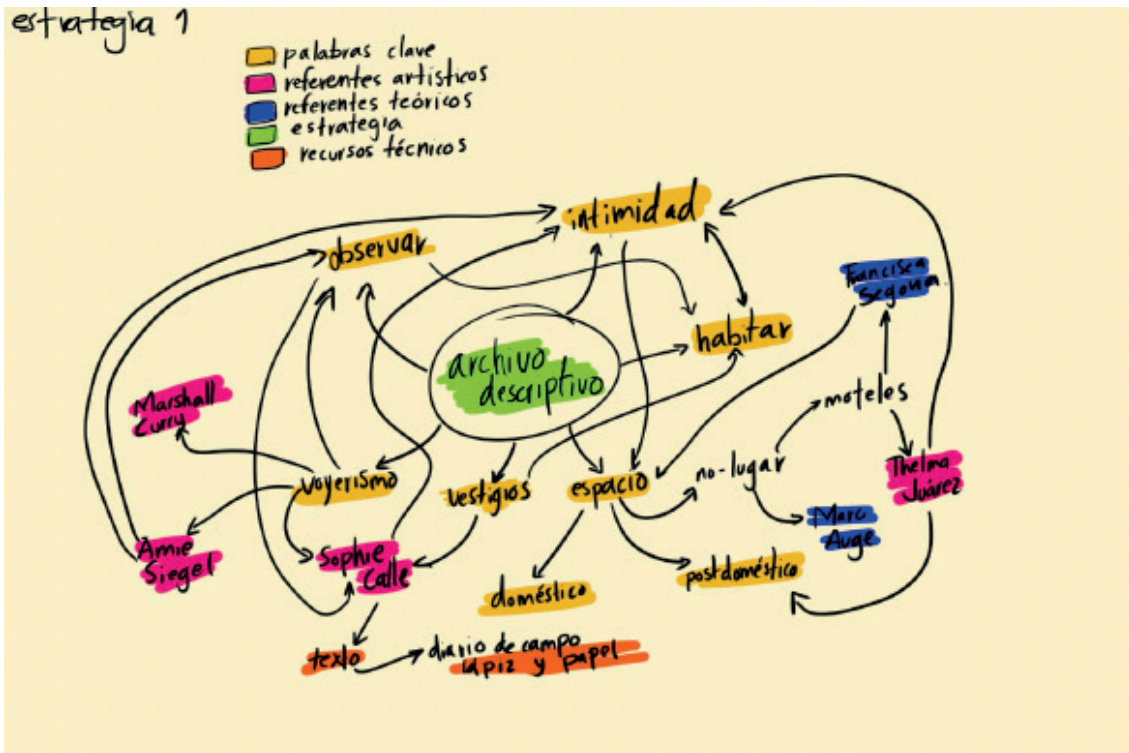 estrategia 1
palabras clave
referentes artísticos
referentes teóricos
estrategia
recursos técnicos
intimidad
observar
Francisca
Segovia
habitar
archivo
descriptivo
moteles
Marshall
Curry
voyerismo
vestigios
espacio
no-lugar
Thelma
Juárez
Marc
Auge
Amie
Siegel
Sophie
Calle
postdoméstico
doméstico
texto
diario de campo
lápiz y papel